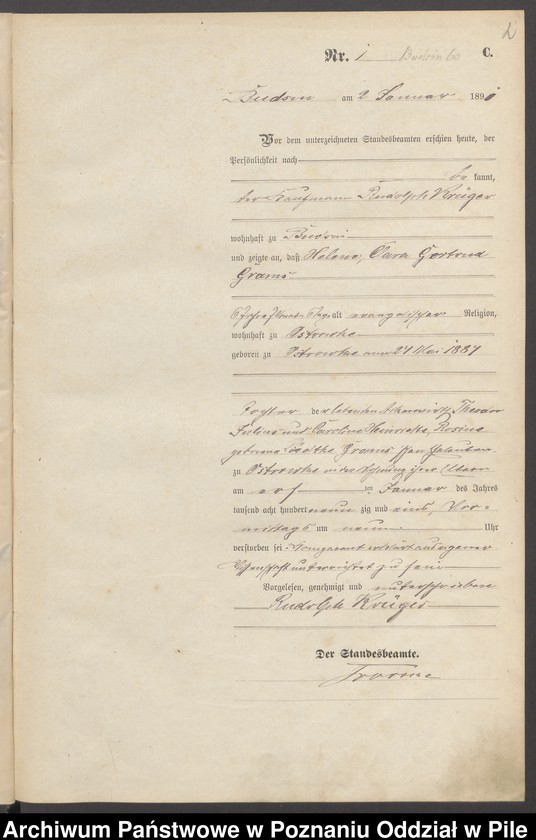 2
Nr. 1 Budsin C.
Budsin am 2 Januar 1891
Vor dem unterzeichneten Standesbeamten erschien heute, der
Persönlichkeit nach
be kannt,
der Kaufmann Rudolph Krüger
wohnhaft zu Budsin
und zeigte an, daß Helene, Clara Gertrud
Grams
alt evangelischer Religion,
wohnhaft zu Ostrowke
geboren zu Ostrowke am 21 Mai 1887
Tochter der Theodor
Julius und Caroline Henriette, Rosine
geborene Grams schen Eheleute
zu Ostrowke in der Wohnung ihrer Eltern
am ersten Januar des Jahres
tausend acht hundert neun zig und eins, Vor-
mittags um neun Uhr
verstorben sei. Komparent erklärt aus eigener
Wissenschaft unterrichtet zu sein
Vorgelesen, genehmigt und unterschrieben
Rudolph Krüger
Der Standesbeamte.
Archiwum Państwowe w Poznaniu Oddział w Pile